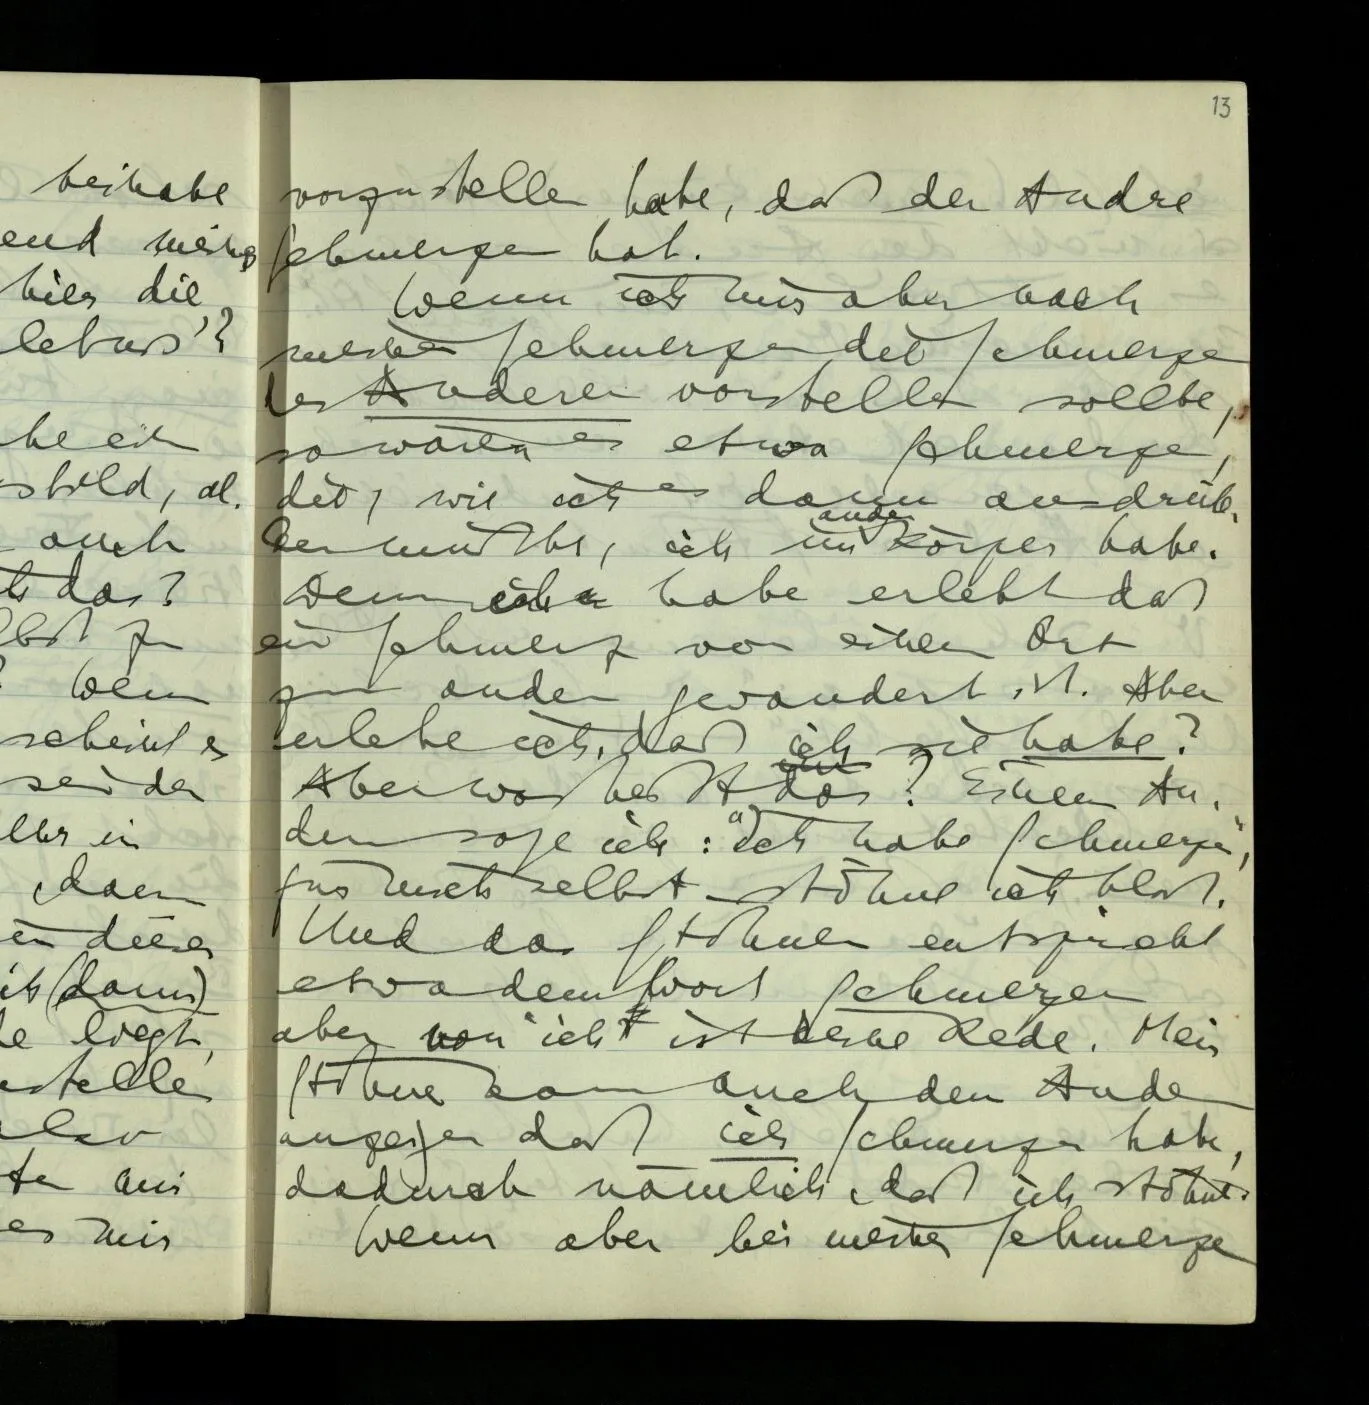 13
beihabe
end meines
hier die
lebnis"?
be ein
sbild, al.
auch
t das?
lbst zu
? Wenn
scheint es
sei der
ller in
dann
in dieser
ich (dann)
de liegt,
stelle
also
te ein
es mir
vorzustellen habe, daß der Andre
Schmerzen hat.
Wenn ich mir aber nach
meinen Schmerzen die Schmerzen
des Anderen vorstellen sollte,
so wären es etwa Schmerzen,
die, wie ich es dann ausdrük-
ken müßte, ich im andern Körper habe.
Denn ich habe erlebt daß
ein Schmerz von einem Ort
zum andern gewandert ist. Aber
erlebe ich, daß ich sie habe?
Aber was heißt das? Einem An-
dern sage ich: "Ich habe Schmerzen",
für mich selbst stöhne ich bloß.
Und das Stöhnen entspricht
etwa dem Wort Schmerzen
aber von "ich" ist keine Rede. Mein
Stöhnen kann auch den Andern
anzeigen daß ich Schmerzen habe,
dadurch nämlich, daß ich stöhne.
Wenn aber bei meinen Schmerzen